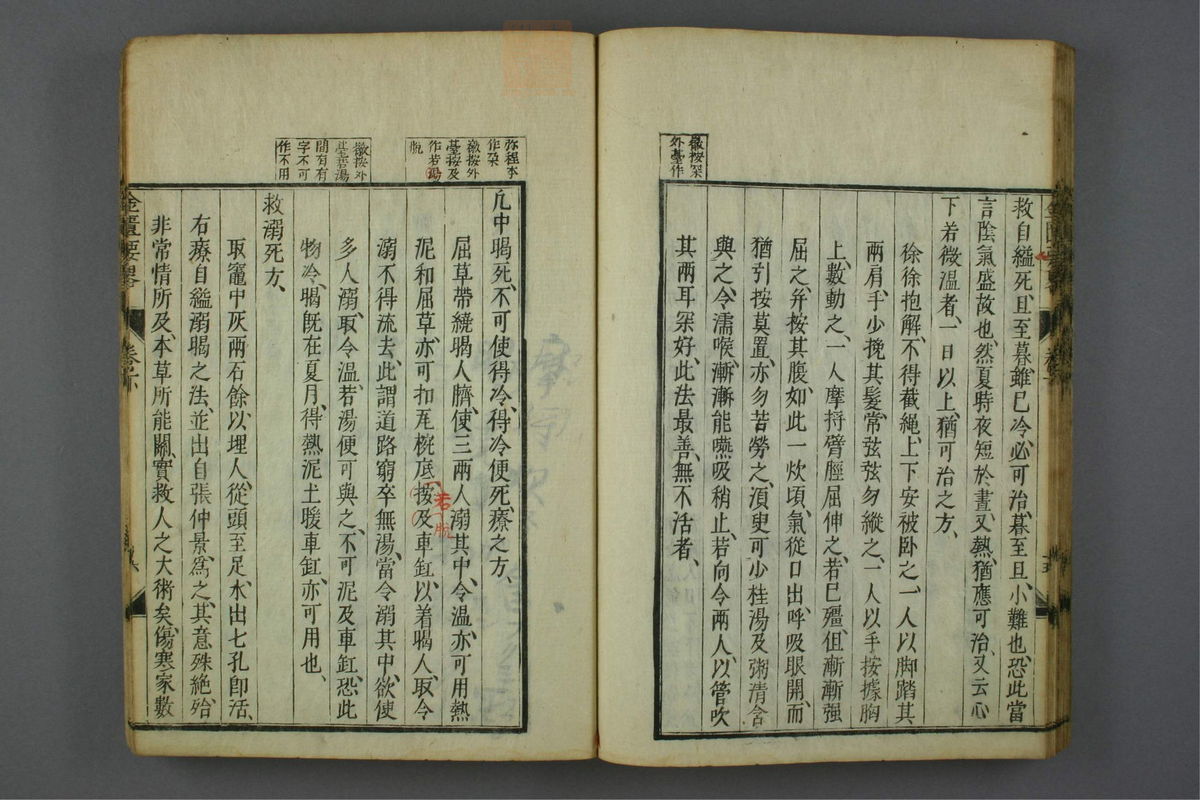 徽按罙
外臺作
救自縊死、旦至暮、雖已冷、必可治、暮至旦、小難也、恐此當
言陰氣盛故也、然夏時夜短於晝、又熱、猶應可治、又云、心
下若微溫者、一日以上、猶可治之方、
徐徐抱解、不得截繩、上下安被臥之、一人以脚踏其
兩肩、手少挽其髮、常弦弦勿縱之、一人以手按據胸
上、數動之、一人摩捋臂脛屈伸之、若已殭、但漸漸强
屈之、幷按其腹、如此一炊頃、氣從口出、呼吸眼開、而
猶引按莫置、亦勿苦勞之、須臾可少桂湯及粥清含
與之、令濡喉、漸漸能嚥、吸稍止、若向令兩人、以管吹
其兩耳、罙好、此法最善、無不活者、
弥程本
作罙
徽按外
臺按及
作若湯
脫
徽按外
臺若湯
間有有
字不可
作不用
凡中暍死、不可使得冷、得冷便死、療之方、
屈草帶繞暍人臍、使三兩人溺其中、令溫、亦可用熱
泥和屈草、亦可扣瓦椀底、按及車缸、以着暍人、取令
若脫
溺不得流去、此謂道路窮卒無湯、當令溺其中、欲使
多人溺、取令溫、若湯便可與之、不可泥及車缸、恐此
物冷、暍旣在夏月、得熱泥土、暖車缸、亦可用也、
救溺死方、
取竈中灰兩石餘、以埋人、從頭至足、水出七孔卽活、
右療自縊溺暍之法、並出自張仲景爲之、其意殊絕、殆
非常情所及、本草所能關、實救人之大術矣、傷寒家數
金匱要畧
卷下